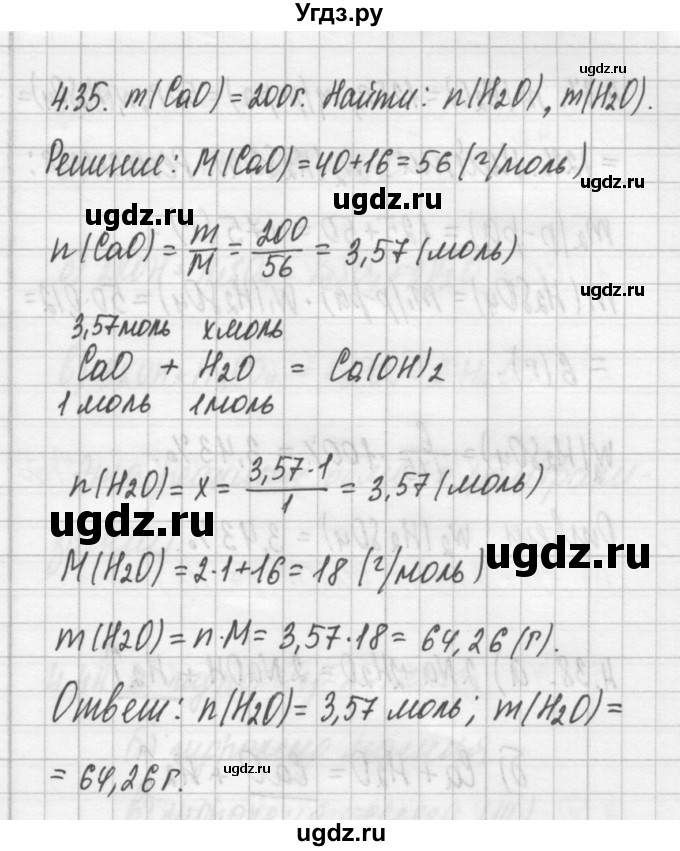 Угдз.ру
4.35. m(CaO) = 200г. Найти: n(H2O), m(H2O).
ugdz.ru
Решение: M(CaO) = 40+16 = 56 (г/моль)
ugdz.ru ugdz.ru
n(CaO) = m/M = 200/56 = 3,57 (моль)
ugdz.ru
3,57моль xмоль
CaO + H2O = Ca(OH)2
1 моль 1моль
n(H2O) = x = 3,57·1/1 = 3,57 (моль)
ugdz.ru
ugdz.ru
M(H2O) = 2·1+16 = 18 (г/моль)
m(H2O) = n·M = 3,57·18 = 64,26 (г).
Ответ: n(H2O) = 3,57 моль; m(H2O) =
= 64,26 г.
ugdz.ru
ugdz.ru